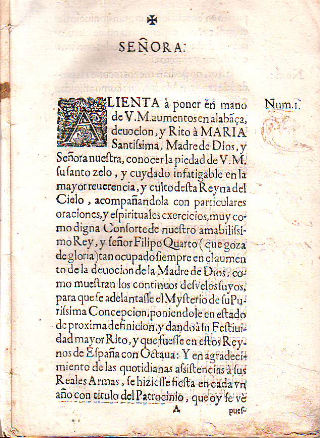 SEÑORA.
ALIENTA à poner en mano Num. 1.
de V.M. aumentos en alabãça,
deuocion, y Rito à MARIA
Santissima, Madre de Dios, y
Señora nuestra, conocer la piedad de V.M.
su santo zelo, y cuydado infatigable en la
mayor reuerencia, y culto desta Reyna del
Cielo, acompañandola con particulares
oraciones, y espirituales exercicios, muy co-
mo digna Consorte de nuestro amabilissi-
mo Rey, y señor Filipo Quarto (que goza
de gloria) tan ocupado siempre en el aumen-
to de la deuocion de la Madre de Dios, co-
mo muestran los continuos desvelos suyos,
para que se adelantasse el Mysterio de su Pu-
rissima Concepcion, poniendole en estado
de proxima definicion, y dando à su Festiui-
dad mayor Rito, y que fuesse en estos Rey-
nos de España con Octaua: Y en agradeci-
miento de las quotidianas assistencias à sus
Reales Armas, se hiziesse fiesta en cada vn
año con titulo del Patrocinio, que oy se vè
A pues-